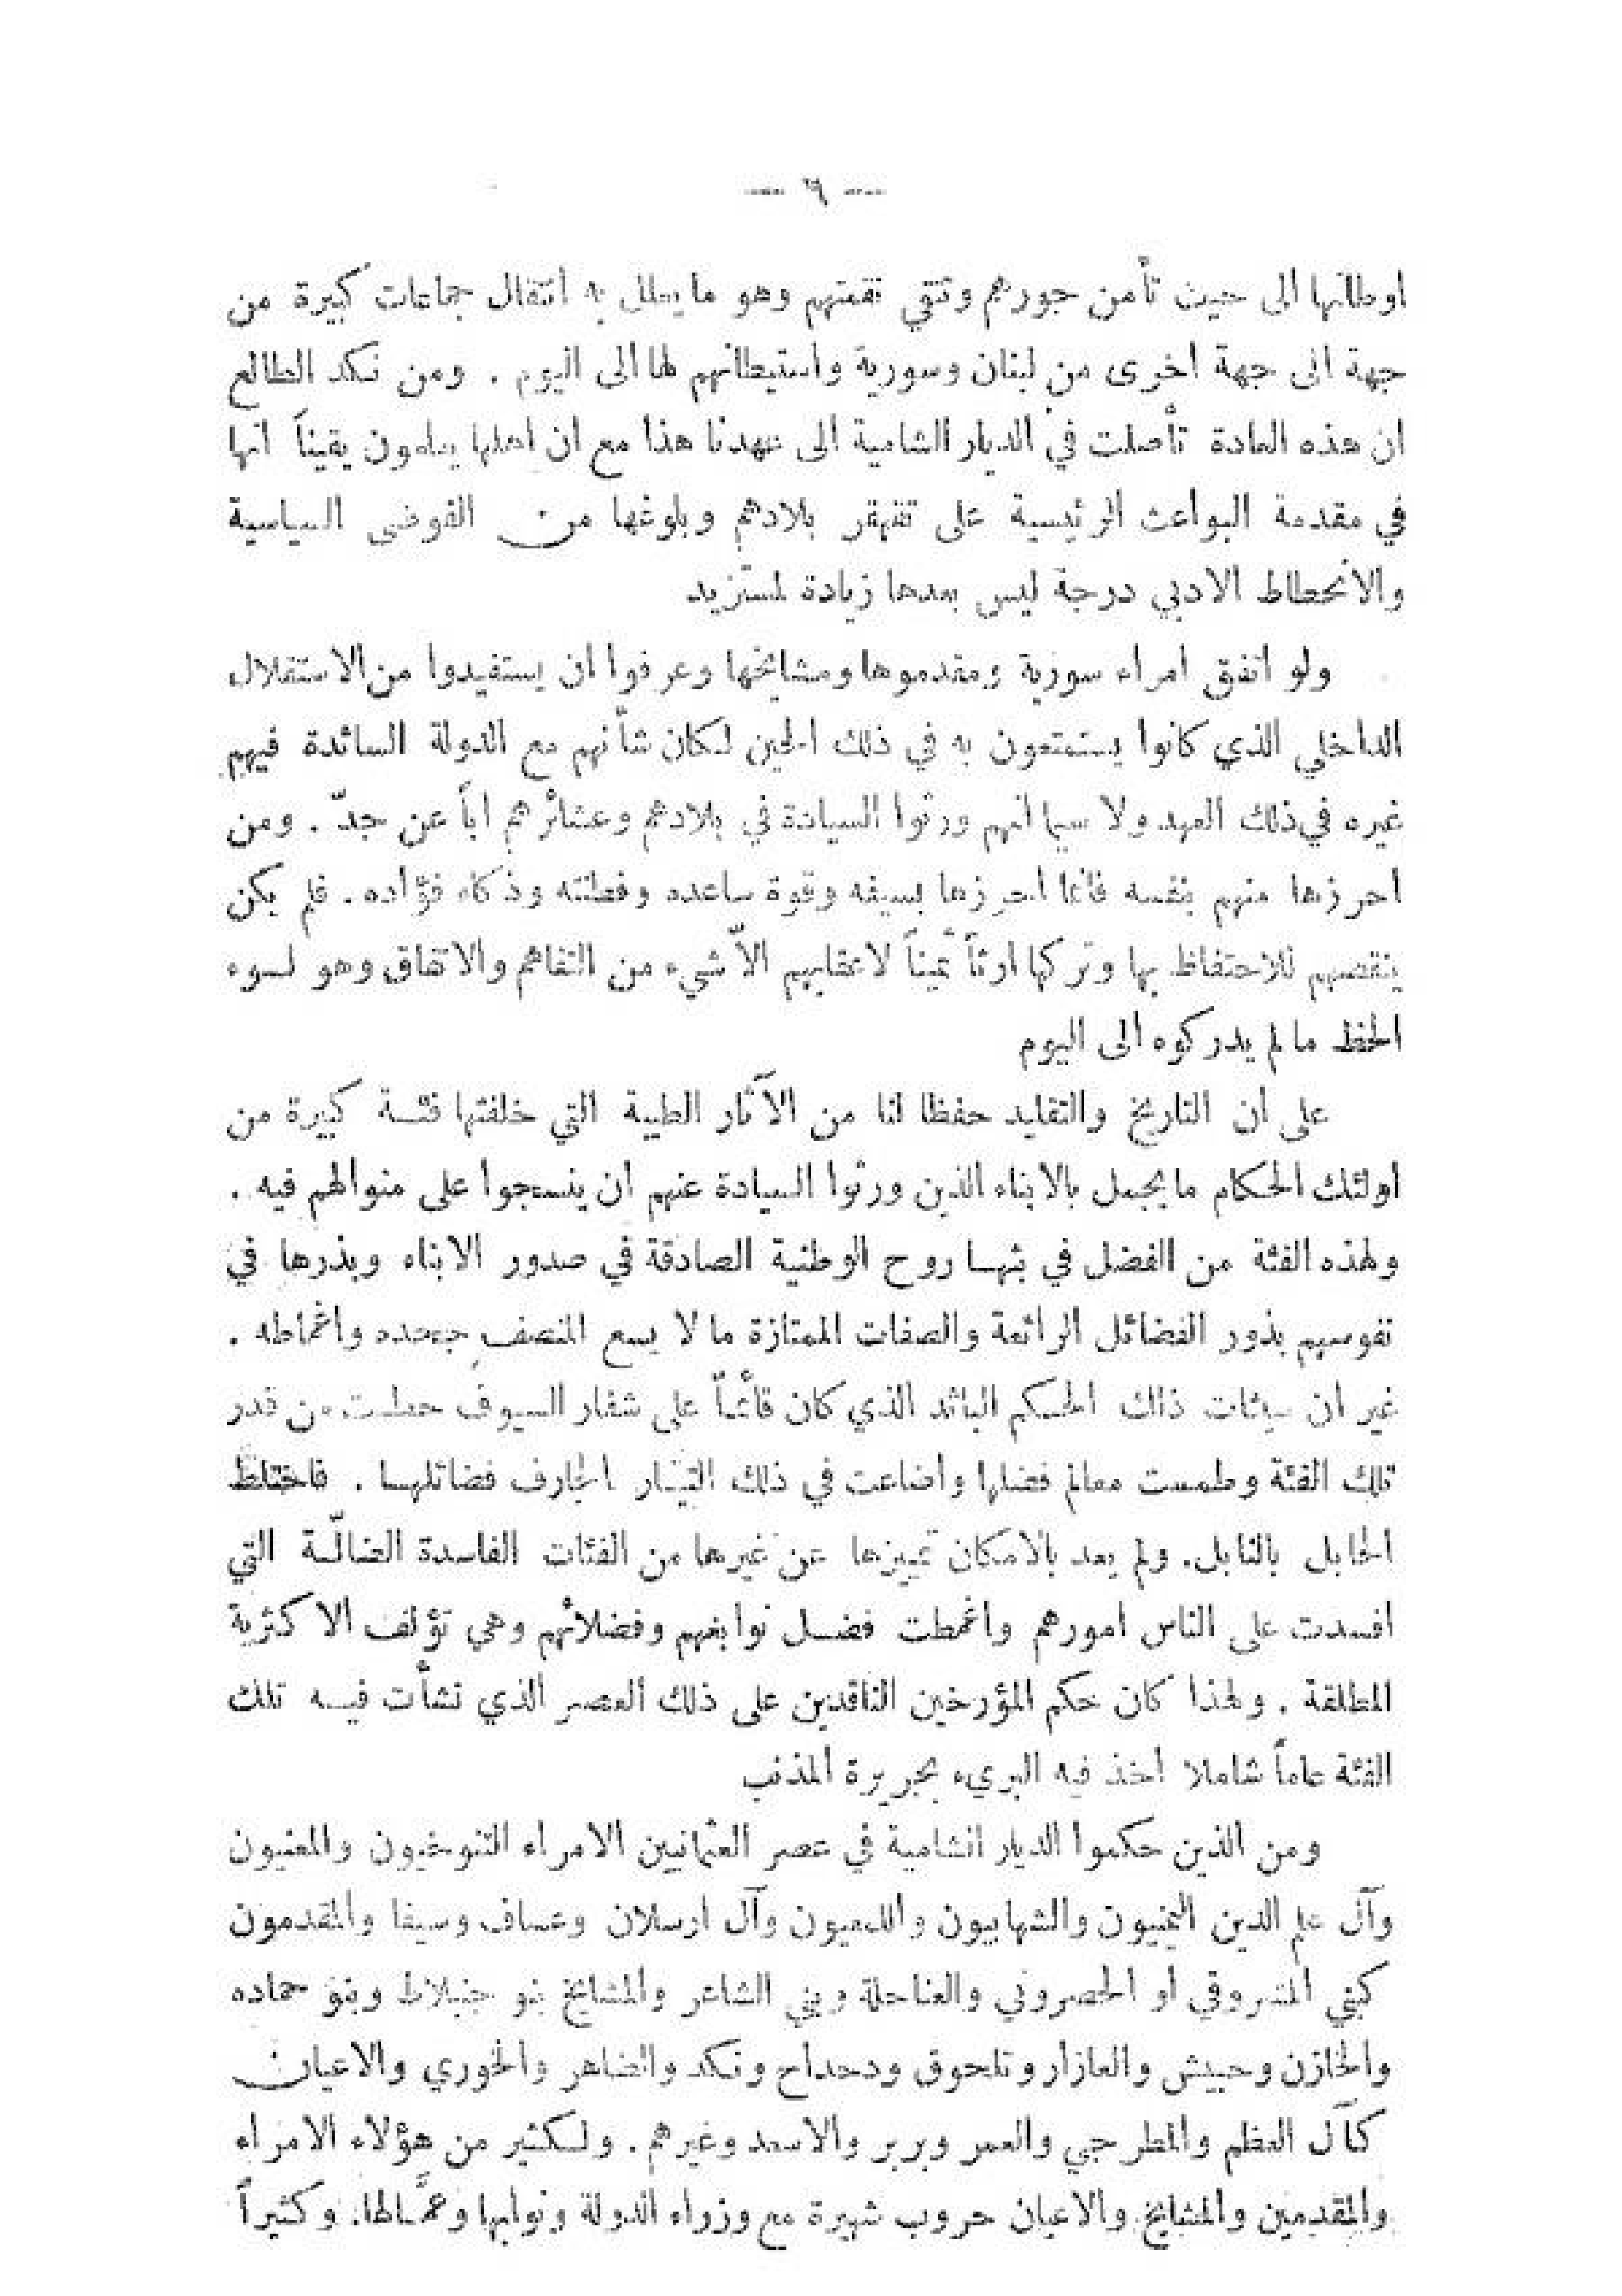 — ٦ —
اوطانها الى حيث تأمن جورهم وتتقي نقمتهم وهو ما يعلل به انتقال جماعات كبيرة من
جهة الى جهة اخرى من لبنان وسورية واستيطانهم لها الى اليوم . ومن نكد الطالع
ان هذه العادة تأصلت في الديار الشامية الى عهدنا هذا مع ان اهلها يعلمون يقيناً انها
في مقدمة البواعث الرئيسية على تقهقر بلادهم وبلوغها من الفوضى السياسية
والانحطاط الادبي درجة ليس بعدها زيادة لمستزيد
ولو اتفق امراء سورية ومقدموها ومشايخها وعرفوا ان يستفيدوا من الاستقلال
الداخلي الذي كانوا يستمتعون به في ذلك الحين لكان شأنهم مع الدولة السائدة فيهم
غيره في ذلك العهد ولا سيما انهم ورثوا السيادة في بلادهم وعشائرهم اباً عن جدّ . ومن
احرزها منهم بنفسه فانما احرزها بسيفه وقوة ساعده وفطنته وذكاء فؤاده . فلم يكن
ينقصهم للاحتفاظ بها وتركها ارثاً ثميناً لاعقابهم الاّ شيء من التفاهم والاتفاق وهو لسوء
الحظ ما لم يدركوه الى اليوم
على ان التاريخ والتقليد حفظا لنا من الآثار الطيبة التي خلفتها فئة كبيرة من
اولئك الحكام ما يجمل بالابناء الذين ورثوا السيادة عنهم ان ينسجوا على منوالهم فيه .
ولهذه الفئة من الفضل في بثها روح الوطنية الصادقة في صدور الابناء وبذرها في
نفوسهم بذور الفضائل الرائعة والصفات الممتازة ما لا يسع المنصف جحده واغماطه .
غير ان سيئات ذلك الحكم البائد الذي كان قائماً على شفار السيوف حطت من قدر
تلك الفئة وطمست معالم فضلها واضاعت في ذلك التيار الجارف فضائلها . فاختلط
الحابل بالنابل . ولم يعد بالامكان تمييزها عن غيرها من الفئات الفاسدة الضالّة التي
افسدت على الناس امورهم واغمطت فضل نوابغهم وفضلائهم وهي تؤلف الاكثرية
المطلقة . ولهذا كان حكم المؤرخين الناقدين على ذلك العصر الذي نشأت فيه تلك
الفئة عاماً شاملا اخذ فيه البريء بجريرة المذنب
ومن الذين حكموا الديار الشامية في عصر العثمانيين الامراء التنوخيون والمعنيون
وآل علم الدين اليمنيون والشهابيون واللمعيون وآل ارسلان وعساف وسيفا والمقدمون
كبني الشدروقي او الحصروني والعناحلة وبني الشاعر والمشايخ بنو جنبلاط وبنو حماده
والخازن وحبيش والعازار وتلحوق ودحداح ونكد والضاهر والخوري والاعيان
كآل العظم والمطرجي والعمر وبربر والاسعد وغيرهم . ولكثير من هؤلاء الامراء
والمقدمين والمشايخ والاعيان حروب شهيرة مع وزراء الدولة ونوابها وعمَّالها . وكثيراً